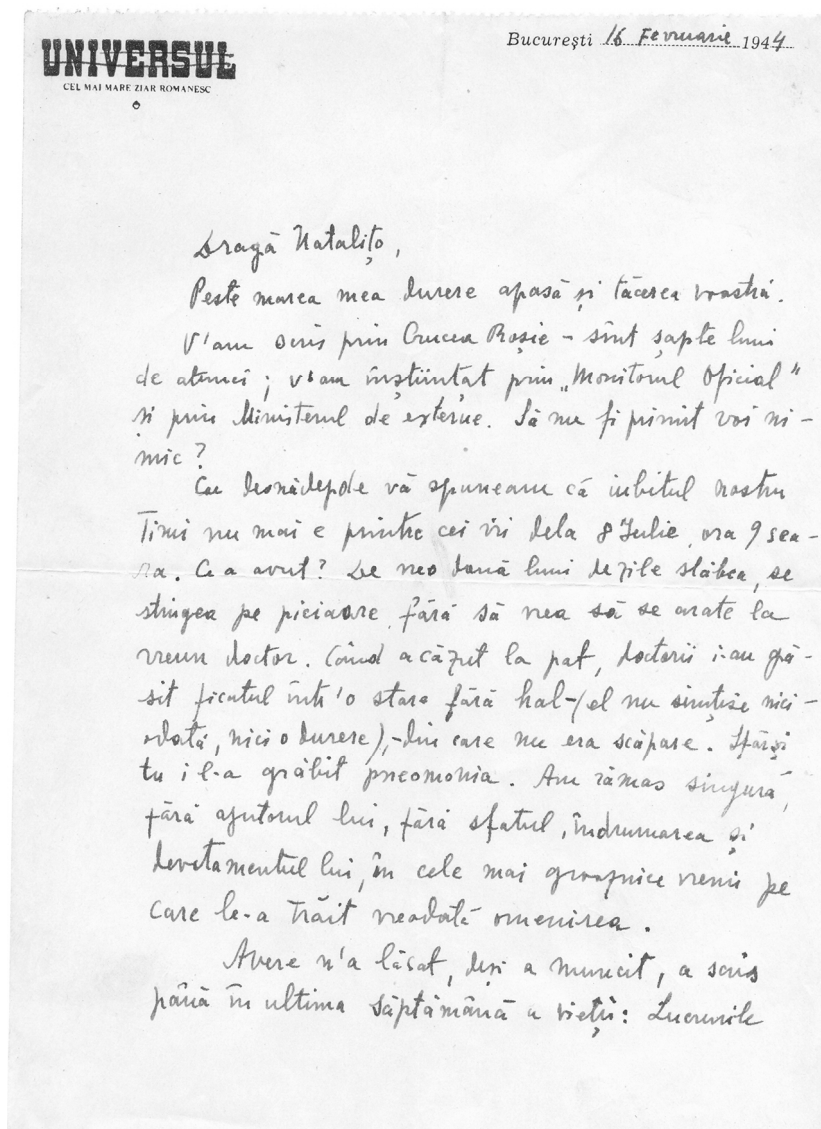 UNIVERSUL
CEL MAI MARE ZIAR ROMANESC
Bucureşti 16 Fevruarie 1944
Dragă Nataliţo,
Peste marea mea durere apasă şi tăcerea voastră.
V'am scris prin Crucea Roşie – sînt şapte luni
de atunci; v'am înştiinţat prin „Monitorul Oficial"
şi prin Ministerul de externe. Să nu fi primit voi ni-
mic?
Cu desnădejde vă spuneam că iubitul nostru
Timi nu mai e printre cei vii dela 8 Iulie, ora 9 sea-
ra. Ce a avut? De vreo două luni de zile slăbea, se
stingea pe picioare fără să vrea să se arate la
vreun doctor. Când a căzut la pat, doctorii i-au gă-
sit ficatul într'o stare fără hal-(el nu simţise nici-
odată, nici o durere),-din care nu era scăpare. Sfârşi
tu i l-a grăbit pneomonia. Am rămas singură,
fără ajutorul lui, fără sfatul, îndrumarea şi
devotamentul lui, în cele mai groaznice vremi pe
care le-a trăit vreodată omenirea.
Avere n'a lăsat, deşi a muncit, a scris
până în ultima săptămână a vieţii: Lucrurile